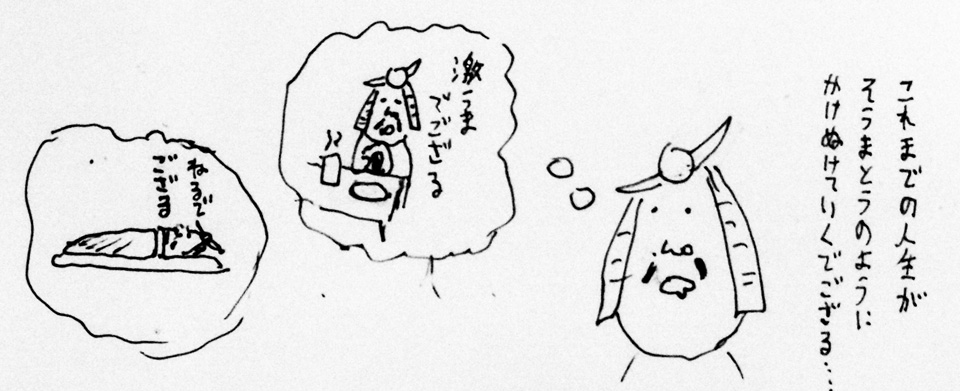 これまでの人生が
そうまとうのように
かけぬけていくでござる…
激うま
でござる
ねるで
ござる